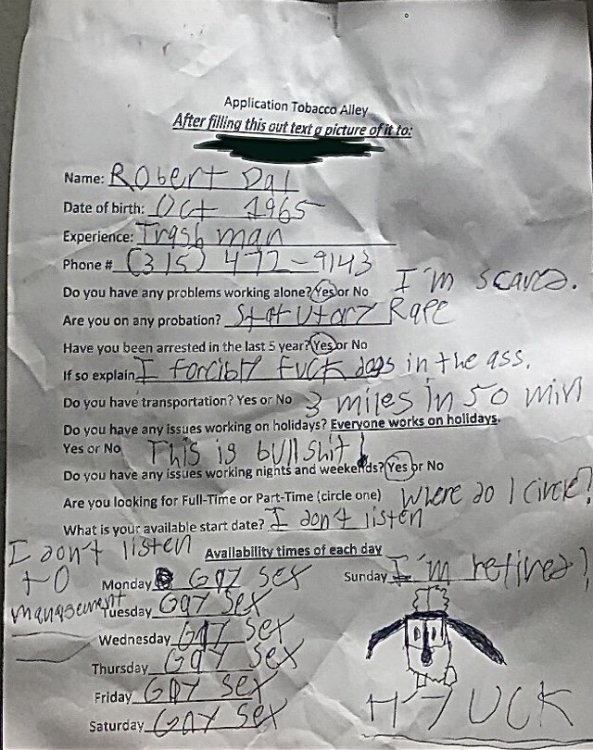 Application Tobacco Alley
After filling this out text a picture of it to:
Name: Robert Dal
Date of birth: Oct 1965
Experience: Trash man
Phone # (315) 472-9143
Do you have any problems working alone? Yes or No I'm scared.
Are you on any probation? Statutory Rape
Have you been arrested in the last 5 year? Yes or No
If so explain I forcibly fuck dogs in the ass.
Do you have transportation? Yes or No 3 miles in 50 min
Do you have any issues working on holidays? Everyone works on holidays.
Yes or No This is bullshit!
Do you have any issues working nights and weekends? Yes or No
Are you looking for Full-Time or Part-Time (circle one) Where do I circle?
What is your available start date? I don't listen
I don't listen
to
management
Availability times of each day
Monday Gay sex
Sunday I'm retired!
Tuesday Gay sex
Wednesday Gay sex
Thursday Gay sex
Friday Gay sex
Saturday Gay sex
HYUCK